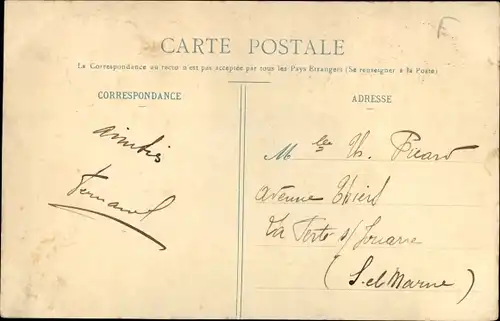 F
CARTE POSTALE
La Correspondance au recto n'est pas acceptée par tous les Pays Etrangers (Se renseigner à la Poste)
CORRESPONDANCE
ADRESSE
Amitiés
Fernand
Mlle Th. Picard
Avenue Thiers
La Ferté s/ Jouarre
(S. et Marne)